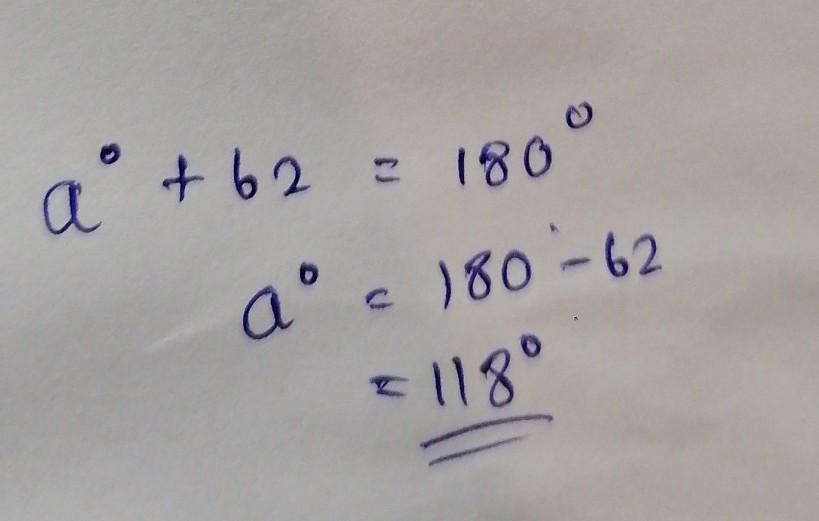 a° + 62 = 180°
a° = 180 - 62
= 118°